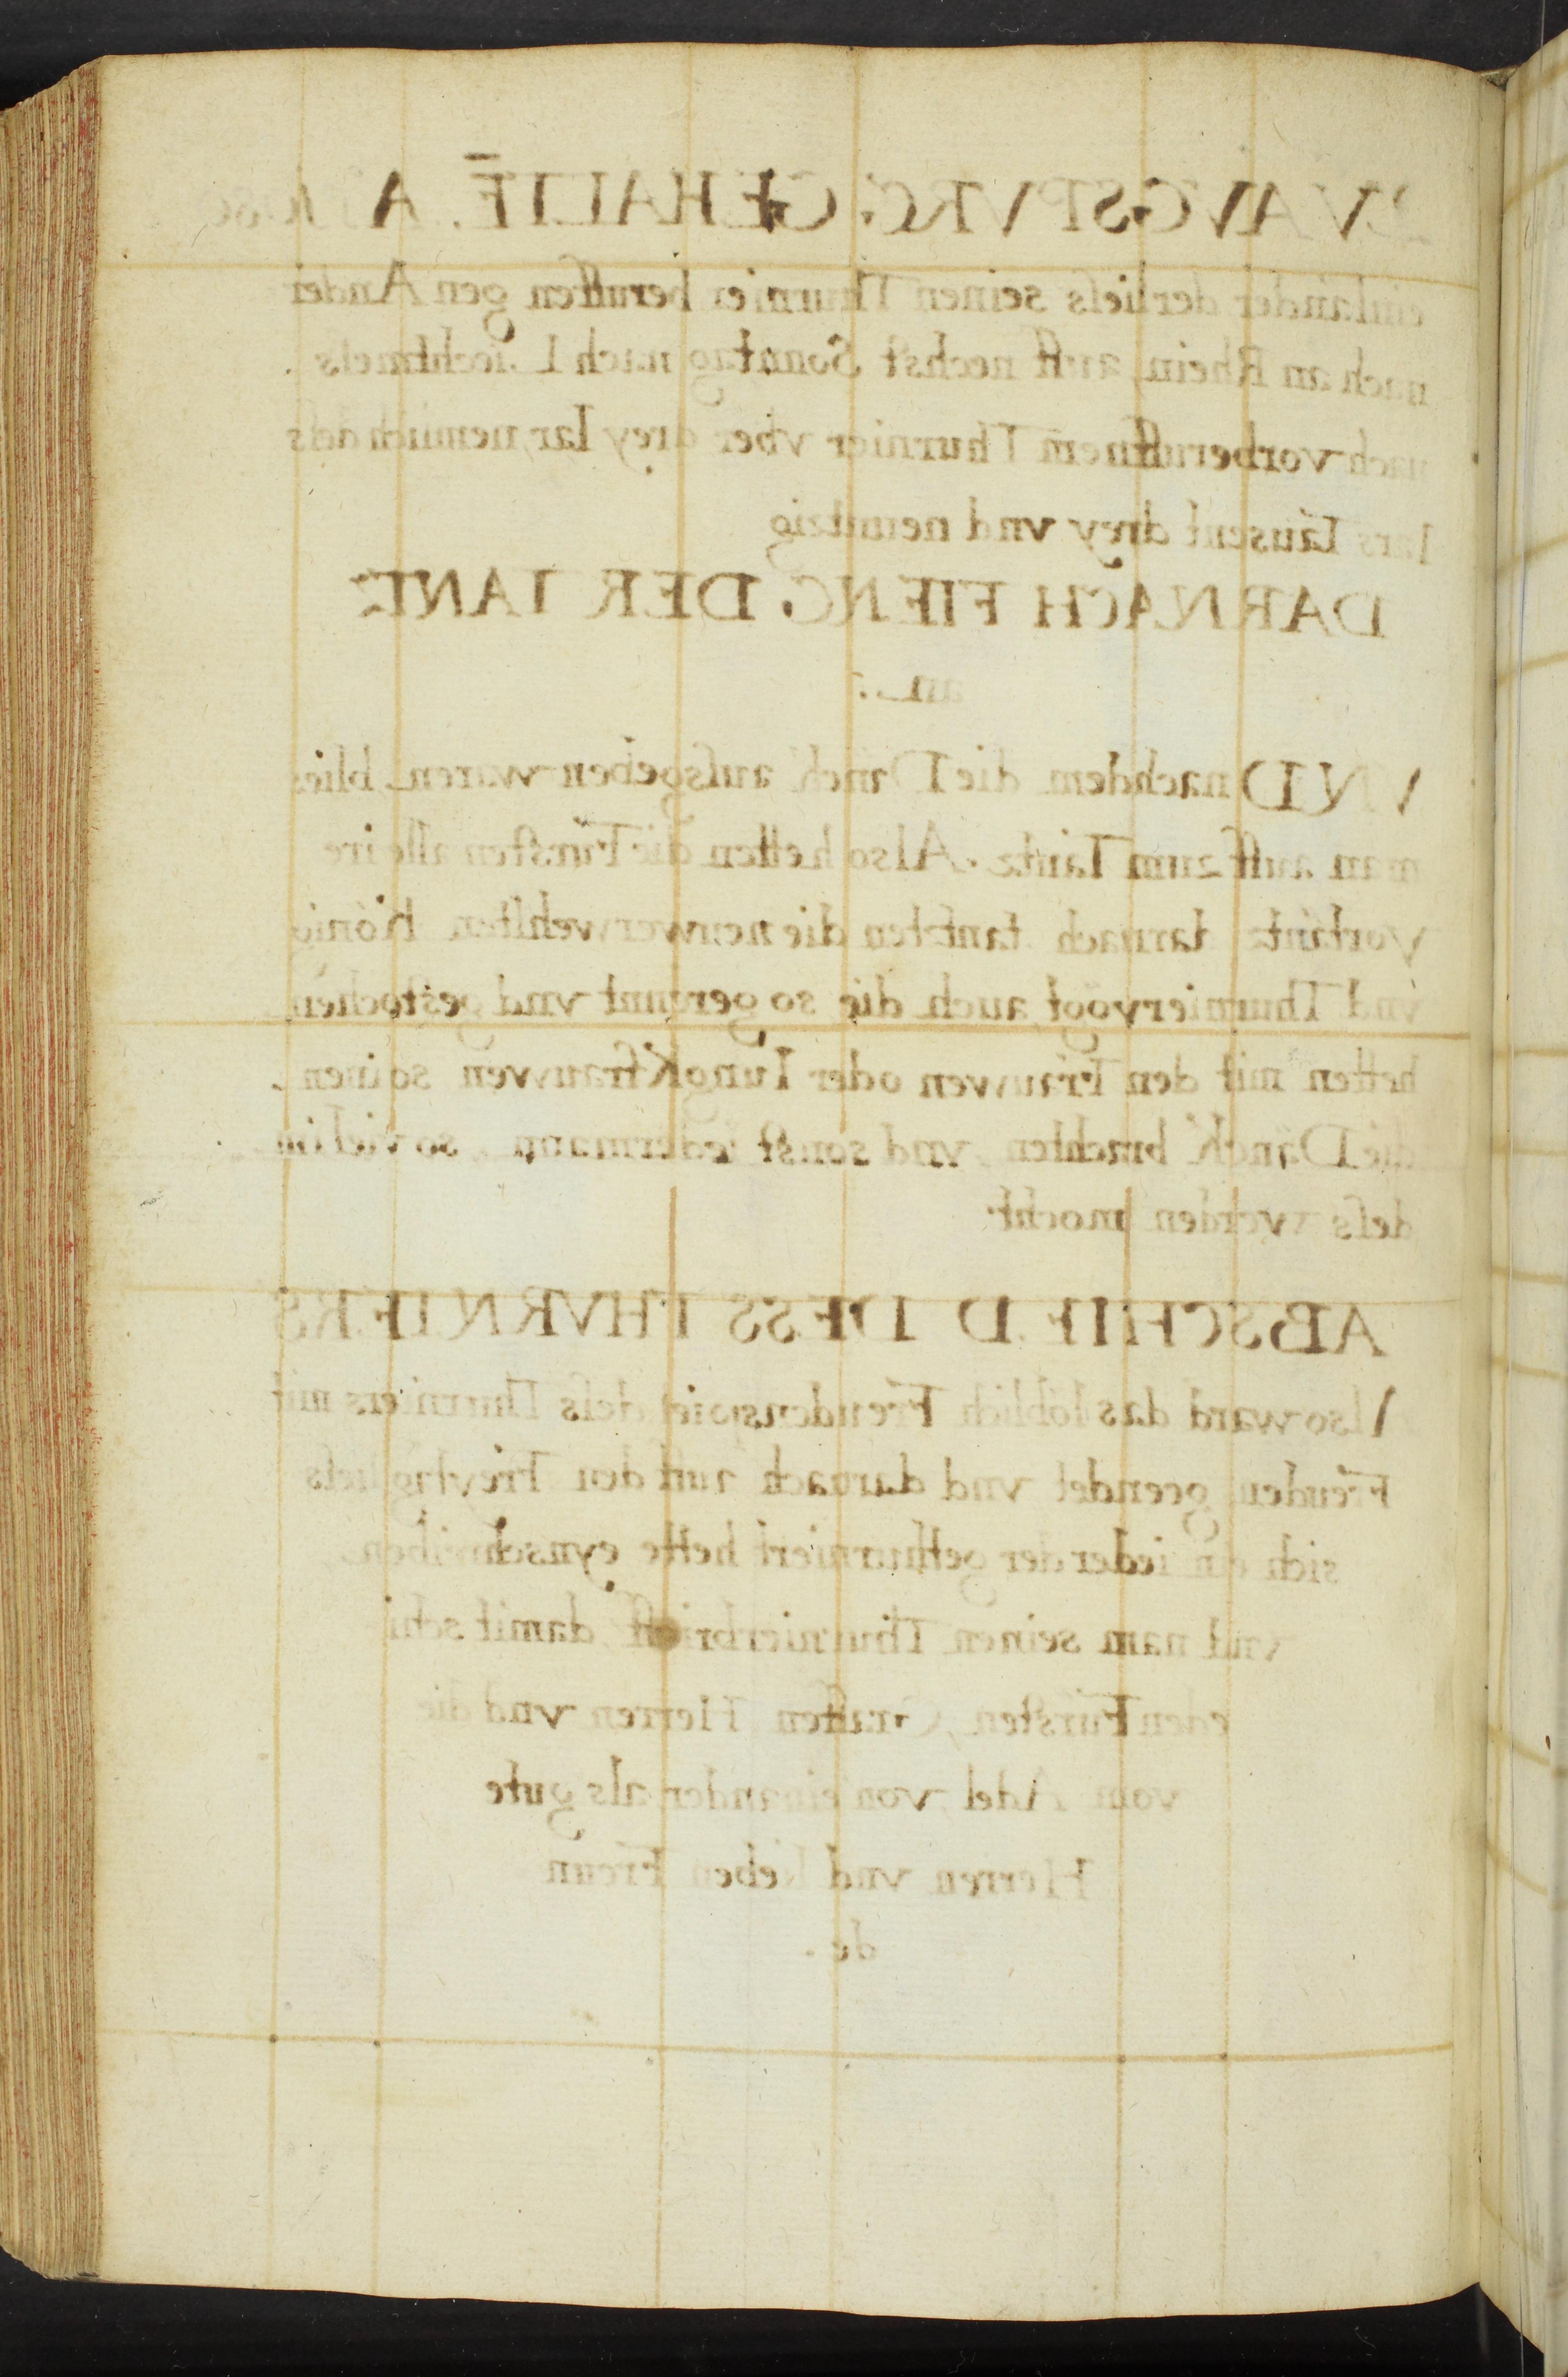 ZV AVGSPVRG GEHALTĒ. A
einländer der liess seinen Thurnier beruffen gen Ander
nach an Rhein, auff nechst Sonntag nach Liechtmess.
nach vorberufftnem Thurnier vber drey Iar, nemlich dess
Iars Tausent drey vnd neuntzig
DARNACH FIENG DER TANTZ
an
VND nachdem die Dänck aussgeben waren, blies
man auff zum Tantz. Also hetten die Fürsten alle ire
Vortäntz darnach tantzten die neuwerwehlten König
vnd Thurniervögt, auch die so gerannt vnd gestochen
hetten mit den Frauwen oder Iungkfrauwen so inen
die Dänck brachten, vnd sonst iederman, so viel im
dess werden mocht
ABSCHIED DESS THVRNIERS
Also ward das löblich Freudenspiel dess Thurniers mit
Freuden geendet vnd darnach auff den Freytag liess
sich ein ieder der gethurniert hette eynschreiben
vnd nam seinen Thurnierbrieff, damit schi
eden Fürsten, Graffen Herren vnd die
vom Adel, von einander, als gute
Herren vnd lieben Freun
de.